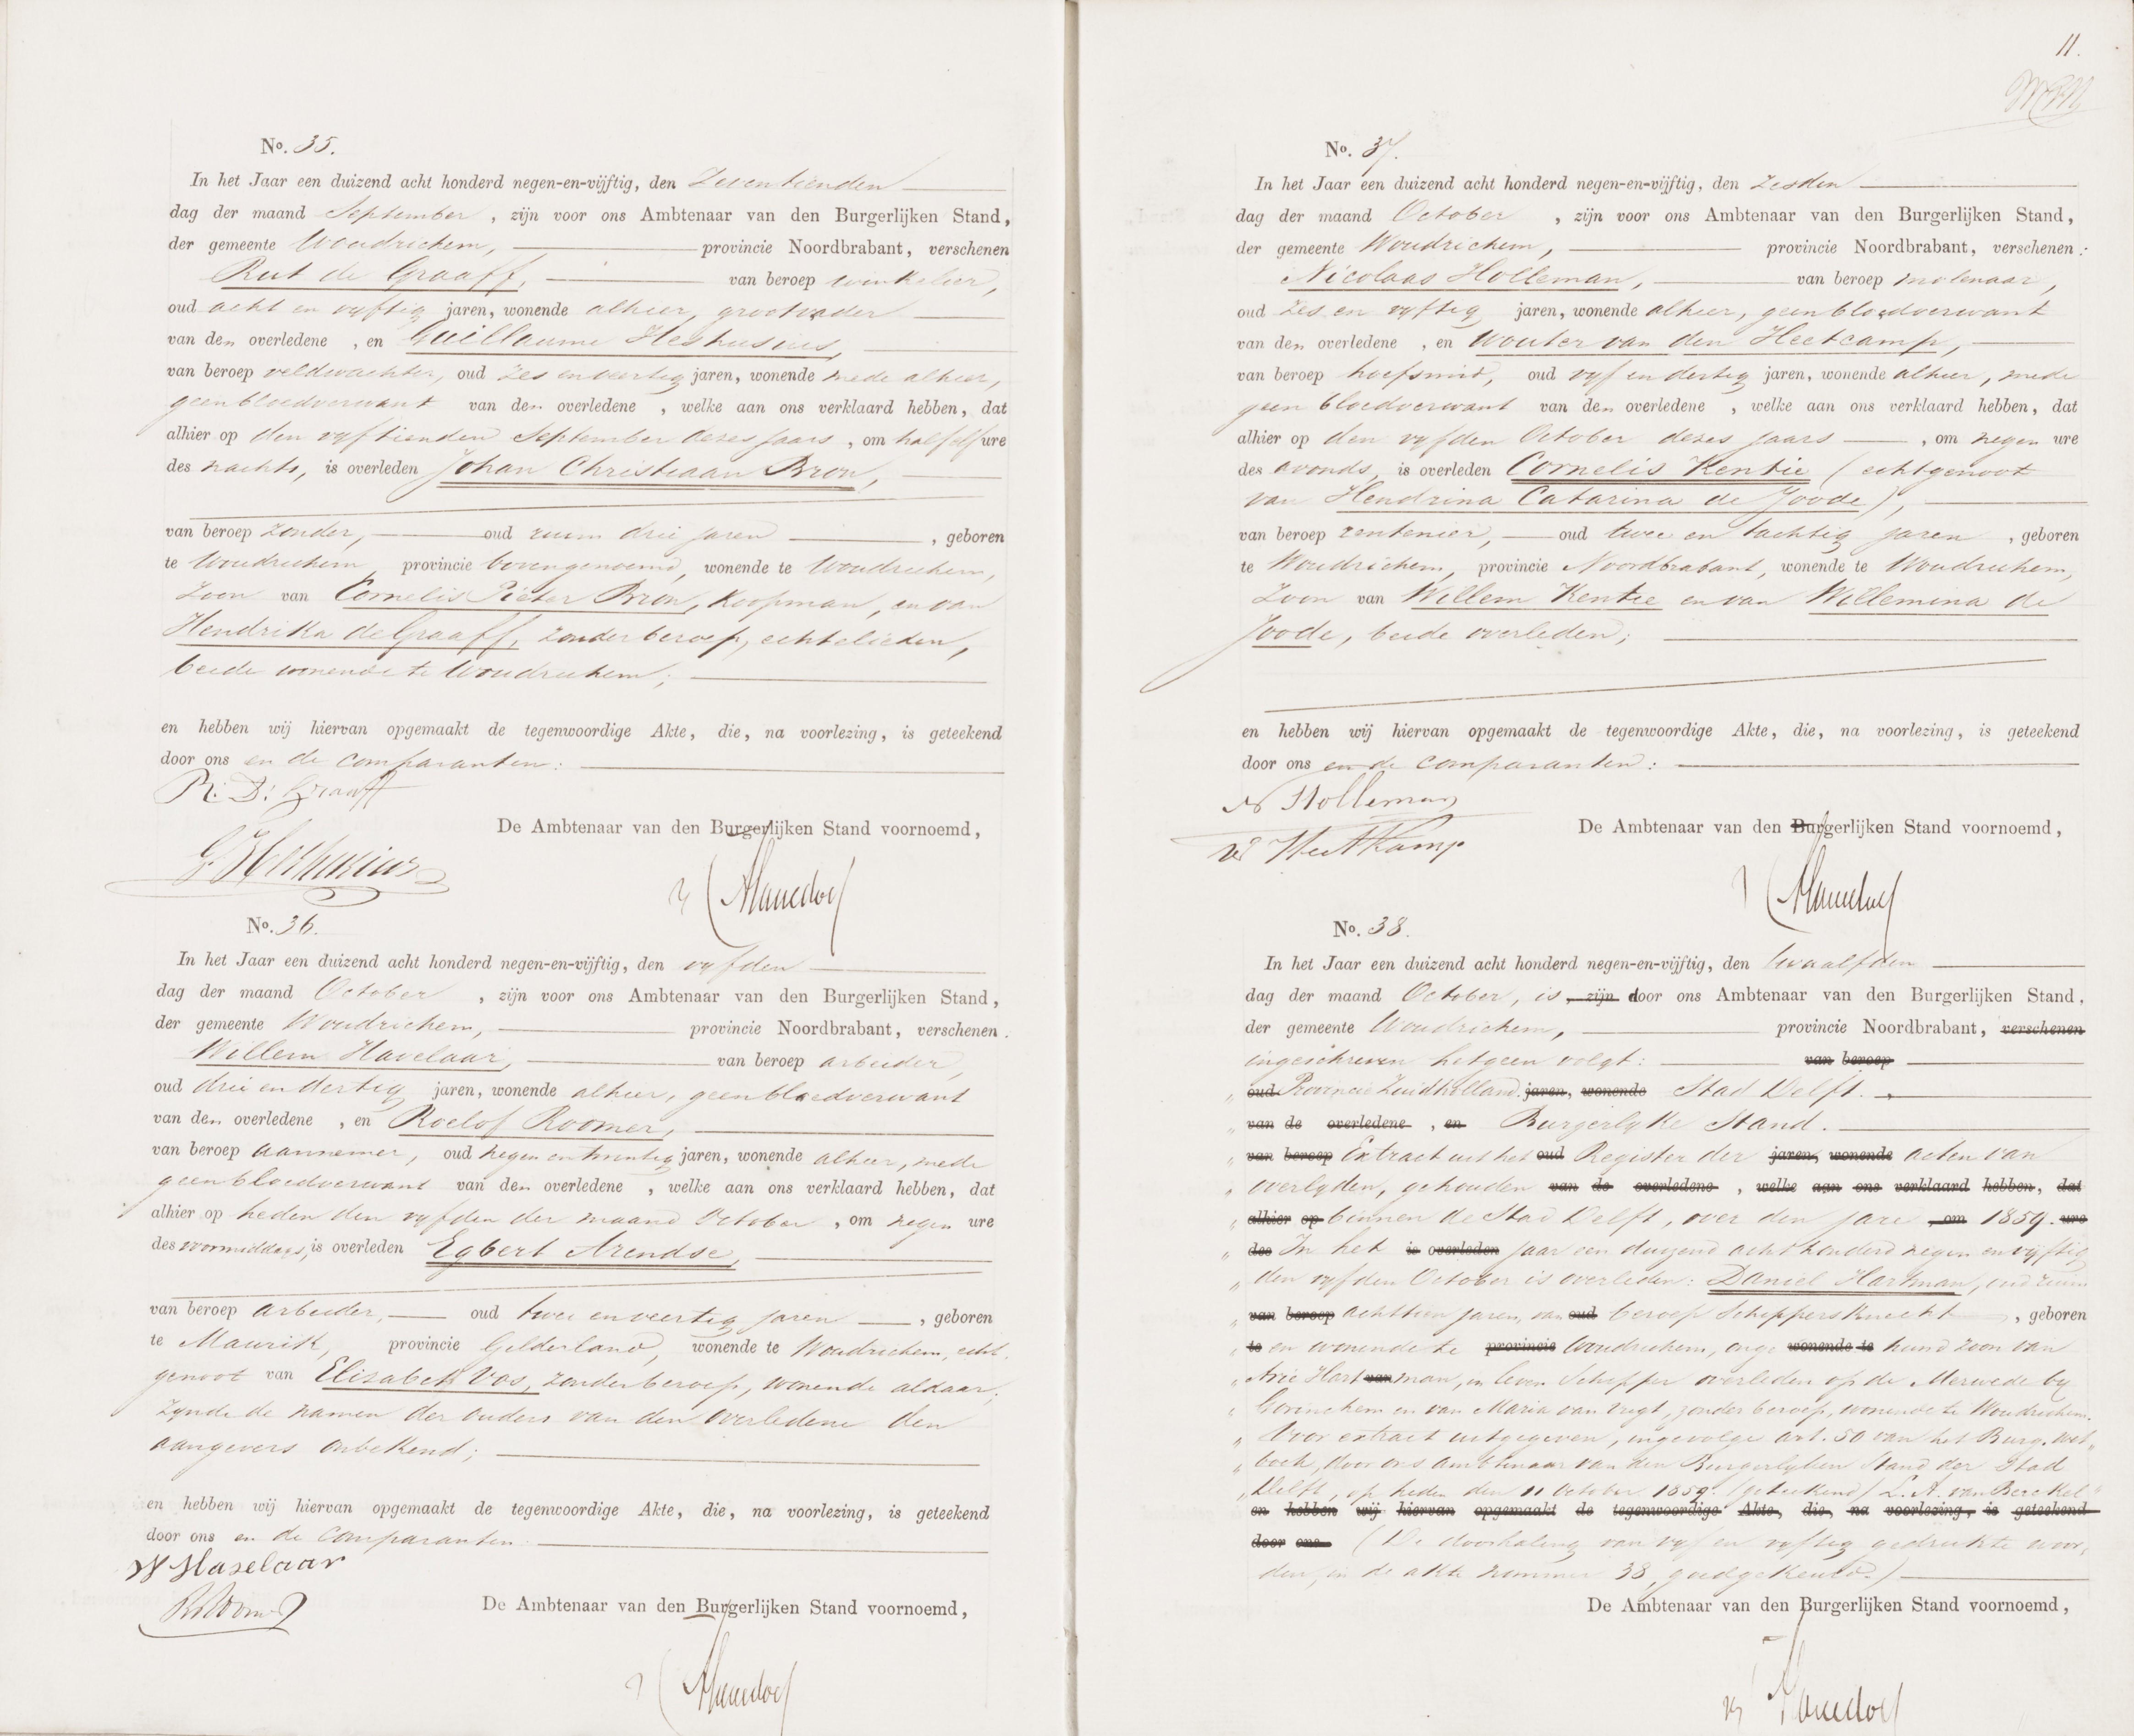 No. 35.
In het Jaar een duizend acht honderd negen-en-vijftig, den Zeventienden
dag der maand September, zijn voor ons Ambtenaar van den Burgerlijken Stand,
der gemeente Woudrichem, provincie Noordbrabant, verschenen
Rut de Graaff, van beroep winkelier,
oud acht en vyftig jaren, wonende alhier, grootvader
van den overledene, en Guillaume Heshusius,
van beroep veldwachter, oud zes en veertig jaren, wonende mede alhier,
geen bloedverwant van den overledene, welke aan ons verklaard hebben, dat
alhier op den vyftienden September dezes jaars, om half elf ure
des nachts, is overleden Johan Christiaan Bron,
van beroep zonder, oud ruim drie jaren, geboren
te Woudrichem, provincie bovengenoemd, wonende te Woudrichem,
Zoon van Cornelis Pieter Bron, Koopman, en van
Hendrika de Graaff, zonder beroep, echtelieden,
beide wonende te Woudrichem;
en hebben wij hiervan opgemaakt de tegenwoordige Akte, die, na voorlezing, is geteekend
door ons en de comparanten:
R: D: Graaff
De Ambtenaar van den Burgerlijken Stand voornoemd,
G Heshusius
No. 36.
In het Jaar een duizend acht honderd negen-en-vijftig, den vyfden
dag der maand October, zijn voor ons Ambtenaar van den Burgerlijken Stand,
der gemeente Woudrichem, provincie Noordbrabant, verschenen
Willem Havelaar, van beroep arbeider,
oud drie en dertig jaren, wonende alhier, geen bloedverwant
van den overledene, en Roelof Roomer,
van beroep aannemer, oud negen en twintig jaren, wonende alhier, mede
geen bloedverwant van den overledene, welke aan ons verklaard hebben, dat
alhier op heden den vyfden der maand October, om negen ure
des voormiddags, is overleden Egbert Arendse,
van beroep arbeider, oud twee en veertig jaren, geboren
te Maurik, provincie Gelderland, wonende te Woudrichem, echt-
genoot van Elizabeth Vos, zonder beroep, wonende aldaar;
zynde de namen der ouders van den overledene den
aangevers onbekend;
en hebben wij hiervan opgemaakt de tegenwoordige Akte, die, na voorlezing, is geteekend
door ons en de comparanten.
W Havelaar
R Roomer
De Ambtenaar van den Burgerlijken Stand voornoemd,
11.
No. 37.
In het Jaar een duizend acht honderd negen-en-vijftig, den zesden
dag der maand October, zijn voor ons Ambtenaar van den Burgerlijken Stand,
der gemeente Woudrichem, provincie Noordbrabant, verschenen:
Nicolaas Holleman, van beroep molenaar,
oud zes en vyftig jaren, wonende alhier, geen bloedverwant
van den overledene, en Wouter van den Heetcamp,
van beroep hoefsmid, oud vyf en dertig jaren, wonende alhier, mede
geen bloedverwant van den overledene, welke aan ons verklaard hebben, dat
alhier op den vyfden October dezes jaars, om negen ure
des avonds, is overleden Cornelis Kentie (echtgenoot
van Hendrina Catarina de Joode),
van beroep rentenier, oud twee en tachtig jaren, geboren
te Woudrichem, provincie Noordbrabant, wonende te Woudrichem,
Zoon van Willem Kentie en van Willemina de
Joode, beide overleden;
en hebben wij hiervan opgemaakt de tegenwoordige Akte, die, na voorlezing, is geteekend
door ons en de comparanten:
N Holleman
De Ambtenaar van den Burgerlijken Stand voornoemd,
No. 38.
In het Jaar een duizend acht honderd negen-en-vijftig, den twaalfden
dag der maand October, is, zijn door ons Ambtenaar van den Burgerlijken Stand,
der gemeente Woudrichem, provincie Noordbrabant, verschenen
ingeschreven hetgeen volgt: van beroep
„ oud Provincie Zuidholland. jaren, wonende Stad Delft.
„ van de overledene, en Burgerlyke Stand.
„ van beroep Extract uit het oud Register der jaren, wonende acten van
„ overlyden, gehouden van de overledene, welke aan ons verklaard hebben, dat
„ alhier op binnen de Stad Delft, over den jare, om 1859. ure
„ des In het is overleden jaar een duizend acht honderd negen en vyftig
„ den vyfden October is overleden: Daniel Hartman, oud ruim
„ van beroep achttien jaren, van oud beroep Schippersknecht, geboren
„ te en wonende te provincie Woudrichem, onge wonende te huwd zoon van
„ Arie Hart van man, in leven Schipper overleden op de Merwede by
„ Gorinchem en van Maria van Vugt, zonder beroep, wonende te Woudrichem.
„ Voor extract uitgegeven, ingevolge art. 50 van het Burg. Wet-
„ boek, door ons ambtenaar van den Burgerlyken Stand der Stad
„ Delft, op heden den 11 October 1859. (geteekend) L. A. van Berckel
en hebben wij hiervan opgemaakt de tegenwoordige Akte, die, na voorlezing, is geteekend
door ons (De doorhaling van vyf en vyftig gedrukte woor-
den, in de akte nommer 38, goedgekeurd.)
De Ambtenaar van den Burgerlijken Stand voornoemd,